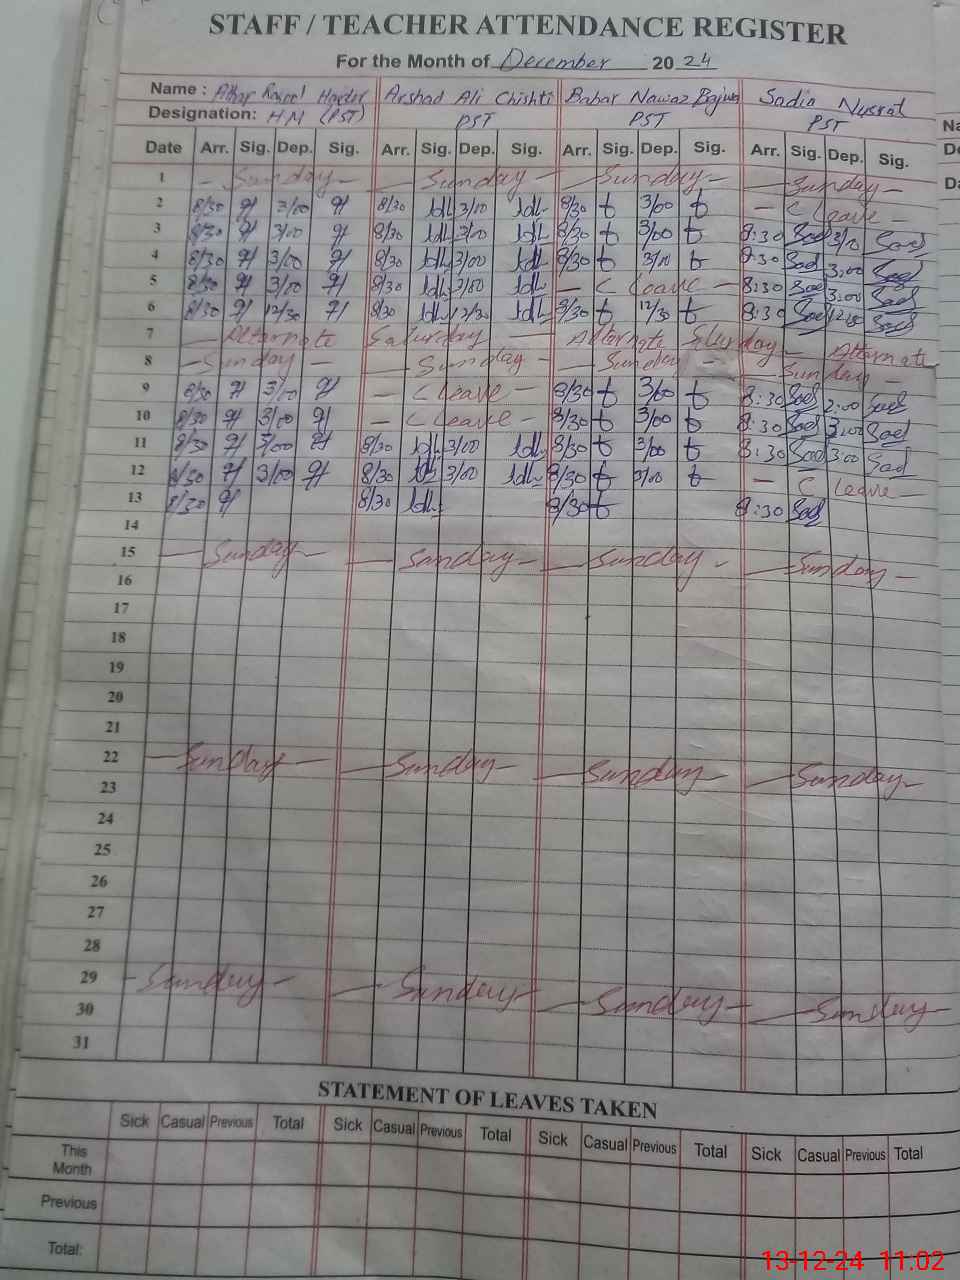 STAFF / TEACHER ATTENDANCE REGISTER
For the Month of December 2024
Name : Rasool Haider Arshad Ali Chishti Babar Nawaz Bajwa Sadia Nusrat
Designation: HM (PST) PST PST PST
Date Arr. Sig. Dep. Sig. Arr. Sig. Dep. Sig. Arr. Sig. Dep. Sig. Arr. Sig. Dep. Sig.
1 - Sunday - - Sunday - - Sunday - - Sunday -
2 8/30 3/00 8/30 3/00 8/30 3/00 - C Leave -
3 8/30 3/00 8/30 3/00 8/30 3/00 8:30 Sad Sad
4 8/30 3/00 8/30 3/00 8/30 3/00 8:30 Sad 3:00 Sad
5 8/30 3/00 8/30 3/00 - C Leave - 8:30 Sad 3:00 Sad
6 8/30 12/30 8/30 12/30 8/30 12/30 8:30 Sad Sad
7 - Alternate Saturday - Alternate Saturday - Alternate
8 - Sunday - - Sunday - - Sunday - - Sunday -
9 8/30 3/00 - C Leave - 8/30 3/00 8:30 Sad Sad
10 8/30 3/00 - C Leave - 8/30 3/00 8:30 Sad 3:00 Sad
11 8/30 3/00 8/30 3/00 8/30 3/00 8:30 Sad 3:00 Sad
12 8/30 3/00 8/30 3/00 8/30 3/00 - C Leave
13 8/30 8/30 8/30 8:30 Sad
14
15 - Sunday - - Sunday - - Sunday - - Sunday -
16
17
18
19
20
21
22 - Sunday - - Sunday - - Sunday - - Sunday -
23
24
25
26
27
28
29 - Sunday - - Sunday - - Sunday - - Sunday -
30
31
STATEMENT OF LEAVES TAKEN
Sick Casual Previous Total Sick Casual Previous Total Sick Casual Previous Total Sick Casual Previous Total
This
Month
Previous
Total:
13-12-24 11:02